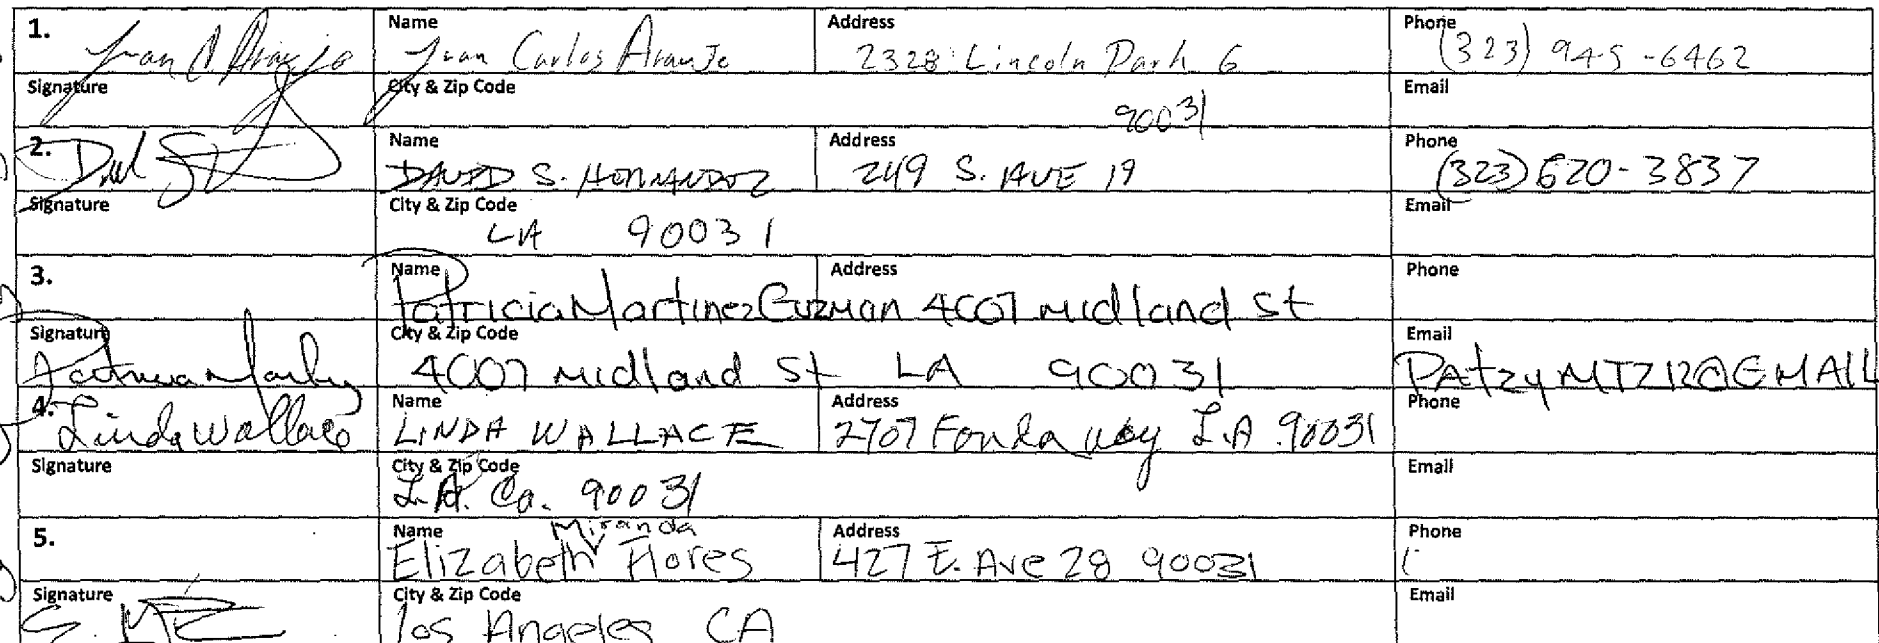 1. Juan C Araujo Name Juan Carlos Araujo Address 2328 Lincoln Park 6 Phone (323) 945-6462
Signature City & Zip Code 90031 Email
2. Name DAVID S. HERNANDEZ Address 249 S. AVE 19 Phone (323) 620-3837
Signature City & Zip Code LA 90031 Email
3. Name Patricia Martinez Guzman Address 4007 midland st Phone
Signature City & Zip Code 4007 midland st LA 90031 Email PatzyMTZ12@GMAIL
4. Linda Wallace Name LINDA WALLACE Address 2707 Fonda way L.A 90031 Phone
Signature City & Zip Code L.A. Ca. 90031 Email
5. Name Elizabeth Miranda Flores Address 427 E. Ave 28 90031 Phone (
Signature City & Zip Code los Angeles CA Email